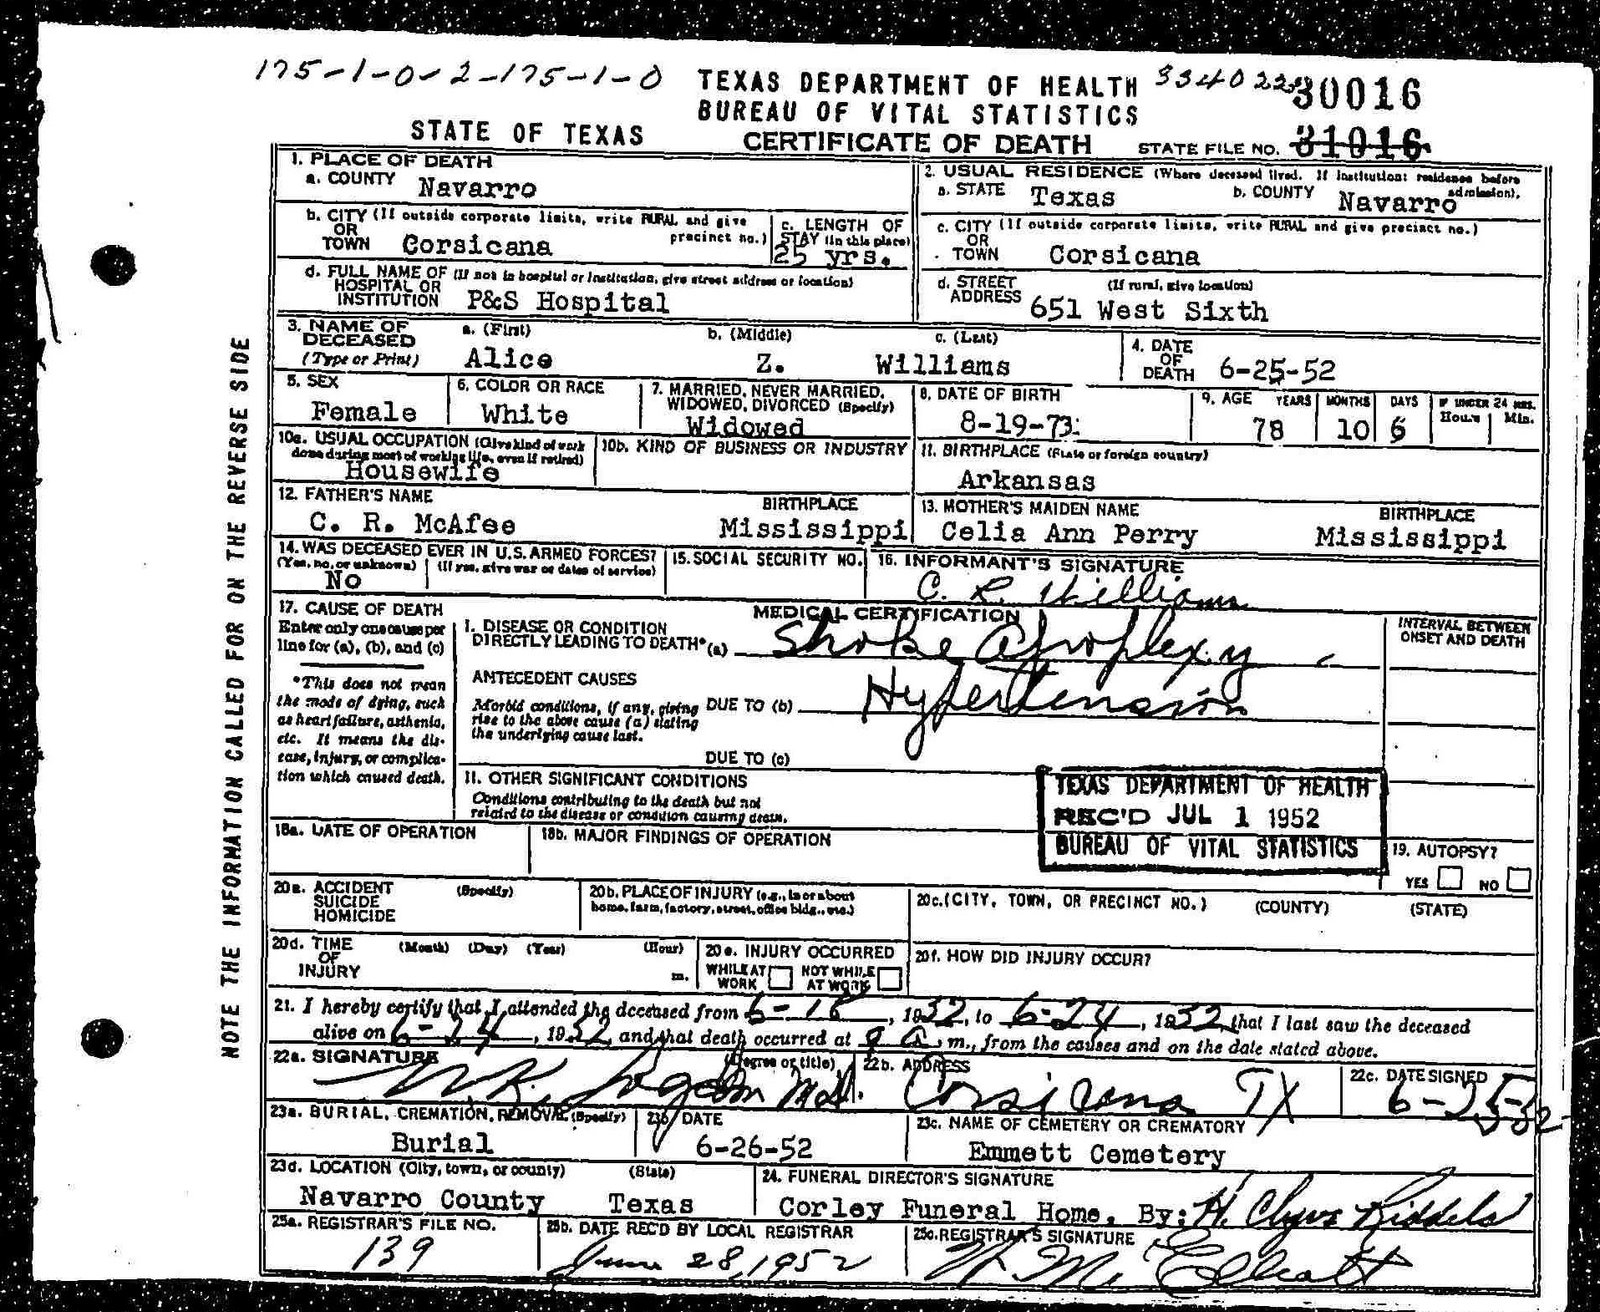 175-1-0-2-175-1-0
TEXAS DEPARTMENT OF HEALTH
BUREAU OF VITAL STATISTICS
30016
STATE OF TEXAS
CERTIFICATE OF DEATH
STATE FILE NO. 31016
1. PLACE OF DEATH
a. COUNTY Navarro
2. USUAL RESIDENCE (Where deceased lived. If institution: residence before admission).
a. STATE Texas b. COUNTY Navarro
b. CITY (If outside corporate limits, write RURAL and give precinct no.)
OR
TOWN Corsicana
c. LENGTH OF
STAY (in this place)
25 yrs.
c. CITY (If outside corporate limits, write RURAL and give precinct no.)
OR
TOWN Corsicana
d. FULL NAME OF (If not in hospital or institution, give street address or location)
HOSPITAL OR
INSTITUTION P&S Hospital
d. STREET (If rural, give location)
ADDRESS 651 West Sixth
3. NAME OF DECEASED (Type or Print)
a. (First) b. (Middle) c. (Last)
Alice Z. Williams
4. DATE OF DEATH 6-25-52
5. SEX
Female
6. COLOR OR RACE
White
7. MARRIED, NEVER MARRIED, WIDOWED, DIVORCED (Specify)
Widowed
8. DATE OF BIRTH
8-19-73
9. AGE YEARS MONTHS DAYS IF UNDER 24 HRS. Hours Min.
78 10 6
10a. USUAL OCCUPATION (Give kind of work done during most of working life, even if retired)
Housewife
10b. KIND OF BUSINESS OR INDUSTRY
11. BIRTHPLACE (State or foreign country)
Arkansas
12. FATHER'S NAME BIRTHPLACE
C. R. McAfee Mississippi
13. MOTHER'S MAIDEN NAME BIRTHPLACE
Celia Ann Perry Mississippi
14. WAS DECEASED EVER IN U.S. ARMED FORCES?
(Yes, no, or unknown) (If yes, give war or dates of service)
No
15. SOCIAL SECURITY NO.
16. INFORMANT'S SIGNATURE
C. R. Williams
17. CAUSE OF DEATH
Enter only one cause per line for (a), (b), and (c)
*This does not mean the mode of dying, such as heart failure, asthenia, etc. It means the disease, injury, or complication which caused death.
MEDICAL CERTIFICATION
INTERVAL BETWEEN ONSET AND DEATH
I. DISEASE OR CONDITION
DIRECTLY LEADING TO DEATH* (a) Stroke Apoplexy
ANTECEDENT CAUSES
Morbid conditions, if any, giving rise to the above cause (a) stating the underlying cause last.
DUE TO (b) Hypertension
DUE TO (c)
II. OTHER SIGNIFICANT CONDITIONS
Conditions contributing to the death but not related to the disease or condition causing death.
TEXAS DEPARTMENT OF HEALTH
REC'D JUL 1 1952
BUREAU OF VITAL STATISTICS
18a. DATE OF OPERATION
18b. MAJOR FINDINGS OF OPERATION
19. AUTOPSY?
YES NO
20a. ACCIDENT (Specify)
SUICIDE
HOMICIDE
20b. PLACE OF INJURY (e.g., in or about home, farm, factory, street, office bldg., etc.)
20c. (CITY, TOWN, OR PRECINCT NO.) (COUNTY) (STATE)
20d. TIME OF INJURY (Month) (Day) (Year) (Hour) m.
20e. INJURY OCCURRED
WHILE AT WORK NOT WHILE AT WORK
20f. HOW DID INJURY OCCUR?
21. I hereby certify that I attended the deceased from 6-18, 1952, to 6-24, 1952, that I last saw the deceased
alive on 6-24, 1952 and that death occurred at 9 a. m., from the causes and on the date stated above.
22a. SIGNATURE (Degree or title)
M.D.
22b. ADDRESS
Corsicana TX
22c. DATE SIGNED
6-25-52
23a. BURIAL, CREMATION, REMOVAL (Specify)
Burial
23b. DATE
6-26-52
23c. NAME OF CEMETERY OR CREMATORY
Emmett Cemetery
23d. LOCATION (City, town, or county) (State)
Navarro County Texas
24. FUNERAL DIRECTOR'S SIGNATURE
Corley Funeral Home, By: H. Clyve Riddels
25a. REGISTRAR'S FILE NO.
139
25b. DATE REC'D BY LOCAL REGISTRAR
June 28, 1952
25c. REGISTRAR'S SIGNATURE
NOTE THE INFORMATION CALLED FOR ON THE REVERSE SIDE